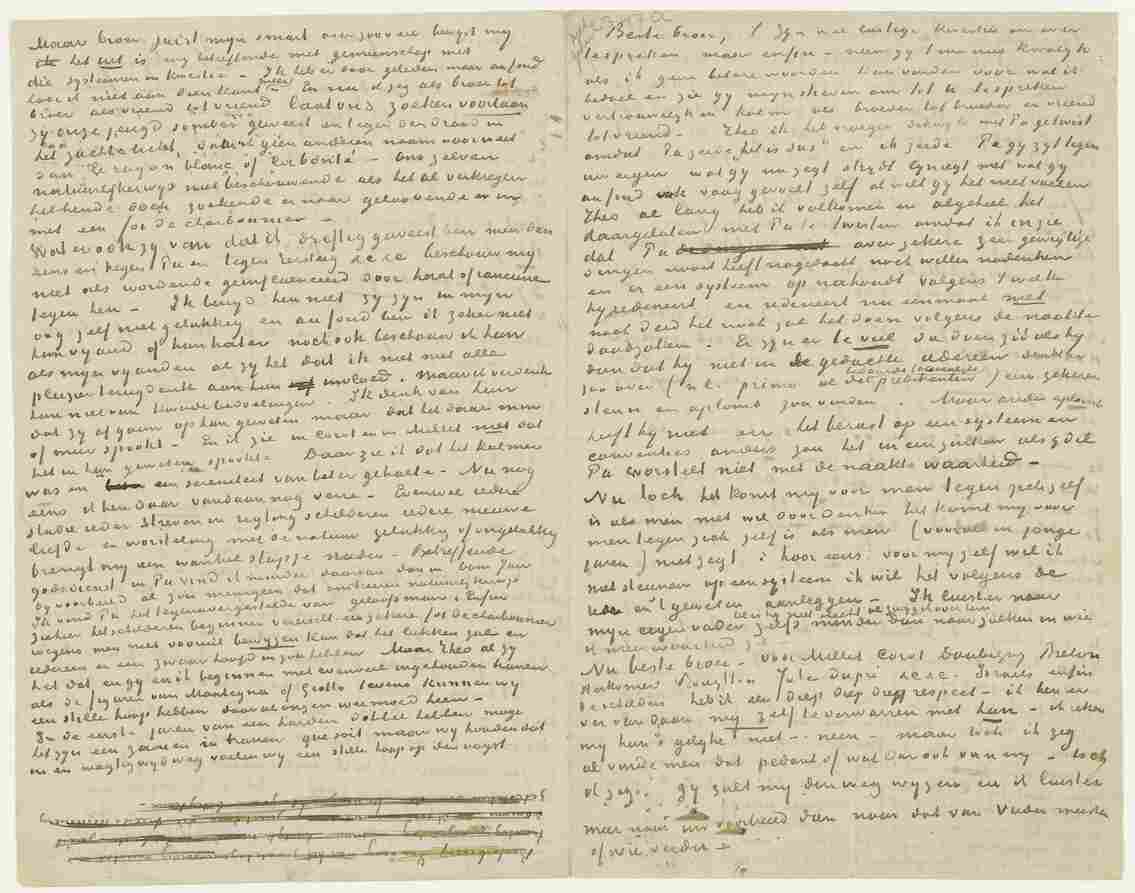 Maar broer juist mijn smart over zooveel bewijst mij
dat het uit is mij betreffende met gemeenschap met
die systemen in kwestie – Ik heb er door geleden maar au fond
hoor ik niet aan dien kant meer – En nu ik zeg als broer tot
broer als vriend tot vriend laat ons zoeken voortaan
zij onze jeugd somber geweest en tegen den draad in
het zachte licht, waarvoor ik geen anderen naam voor weet
dan "le rayon blanc" of "le bonté" – Ons zelven
natuurlijkerwijs niet beschouwende als het al verkregen
hebbende doch zoekende er naar geloovende er in
met een foi de charbonnier –
Wat er ook zij van dat ik driftig geweest ben
tegen Pa en tegen Tersteeg &c &c beschouw mij
niet als wordende geinfluenceerd door haat of rancune
tegen hen – Ik benijd hen niet zij zijn in mijn
oog zelf niet gelukkig en au fond ben ik zeker niet
hun vijand of hun hater noch ook beschouw ik hen
als mijn vijanden al zij het dat ik niet met alle
pleizier terugdenk aan hun invloed. Maar ik verdenk
hen niet van kwade bedoelingen. Ik denk van hen
dat zij afgaan op hun geweten maar dat het daar in
of meer spookt – En ik zie in Corot en in Millet niet dat
het in hun geweten spookte. Daar zie ik dat het kalmer
was en een sereniteit van beter gehalte – Nu nog
eens ik ben daar vandaan nog verre – Evenwel iedere
studie ieder streven in zake schilderen iedere nieuwe
liefde en worsteling met de natuur gelukkig of ongelukkig
brengt mij een wankel stapje nader – Betreffende
godsdienst in Pa vind ik minder daarvan dan in oom Jan
bij voorbeeld al zou menigeen dat omkeeren natuurlijkerwijs
Ik vind Pa het tegenovergestelde van geloofsman. Enfin
zieken het schilderen beginnen vereischt een zekere foi de charbonnier
wegens men niet vooruit bewijzen kan dat het lukken zal en
iedereen er een zwaar hoofd in zou hebben Maar Theo al zij
het dat en gij en ik beginnen met evenveel ingehouden tranen
als de figuren van Mantegna of Giotto tevens kunnen wij
een stille hoop hebben door al onzen weemoed heen –
In de eerste jaren van een harden dobber hebben moge
het zijn een zaaien in tranen que soit maar wij houden dat
in en wegligwijd weg voelen wij een stille hoop op den oogst
Beste broer, Er zijn wel eenige kwesties om over
te spreken maar enfin – neem gij t mij niet kwalijk
als ik geen betere woorden kan vinden voor wat ik
bedoel en zie gij mijn schrijven om tot U te spreken
vertrouwelijk en kalm als broeder tot broeder en vriend
tot vriend – Theo ik heb vroeger dikwijls met Pa getwist
omdat Pa zeide "het is dus" en ik zeide Pa gij zijt tegen
uw eigen wat gij nu zegt strijdt lijnregt met wat gij
au fond vaag gevoelt zelf al wilt gij het niet voelen
Theo al lang heb ik volkomen en algeheel het
daargelaten met Pa te twisten omdat ik inzie
dat Pa over zekere zeer gewigtige
dingen nooit heeft nagedacht noch willen nadenken
en er een systeem op nahoudt volgens t welk
hij redeneert en redeneert nu eenmaal niet
noch deed het noch zal het doen volgens de naakte
daadzaken. Er zijn er te veel die doen zooals hij
dan dat hij niet in de gedachte iedereen denkt er
zoo over (nl. primo al de predikanten) een zekeren
steun en aplomb zou vinden. Maar ander aplomb
heeft hij niet en het berust op een systeem en
conventies anders zou het ineenzakken als
Pa worstelt niet met de naakte waarheid –
Nu toch het komt mij voor men tegen zich zelf
is als men niet wil doordenken het komt mij voor
men tegen zich zelf is als men (vooral in jonge
jaren) niet zegt: hoor eens: voor mij zelf wil ik
niet steunen op een systeem ik wil het volgens de
rede en t geweten aanleggen – Ik luister naar
mijn eigen vader zelfs minder dan naar zulken in wie
ik meer waarheid zie
Nu beste broer – voor Millet Corot Daubigny Breton
Herkomer Boughton Jules Dupré &c &c. Israels enfin
bescheiden heb ik een diep diep diep respect – ik ben er
ver vandaan mij zelf te verwarren met hen – ik reken
mij hun "gelijke" niet – neen – maar toch ik zeg
al vinde men dat pedant of wat dan ook van mij – toch
ik zeg: gij zult mij den weg wijzen en ik luister
meer naar uw voorbeeld dan naar dat van Vader meester
of wie verder –